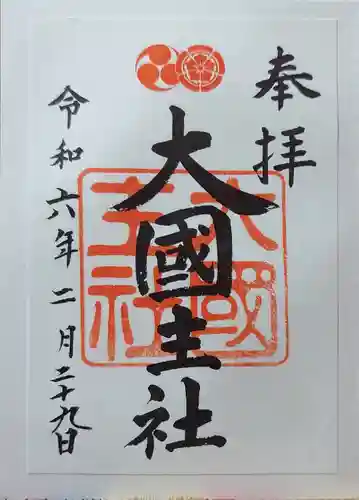 奉拝
大國主社
令和六年二月二十九日
大國
主社